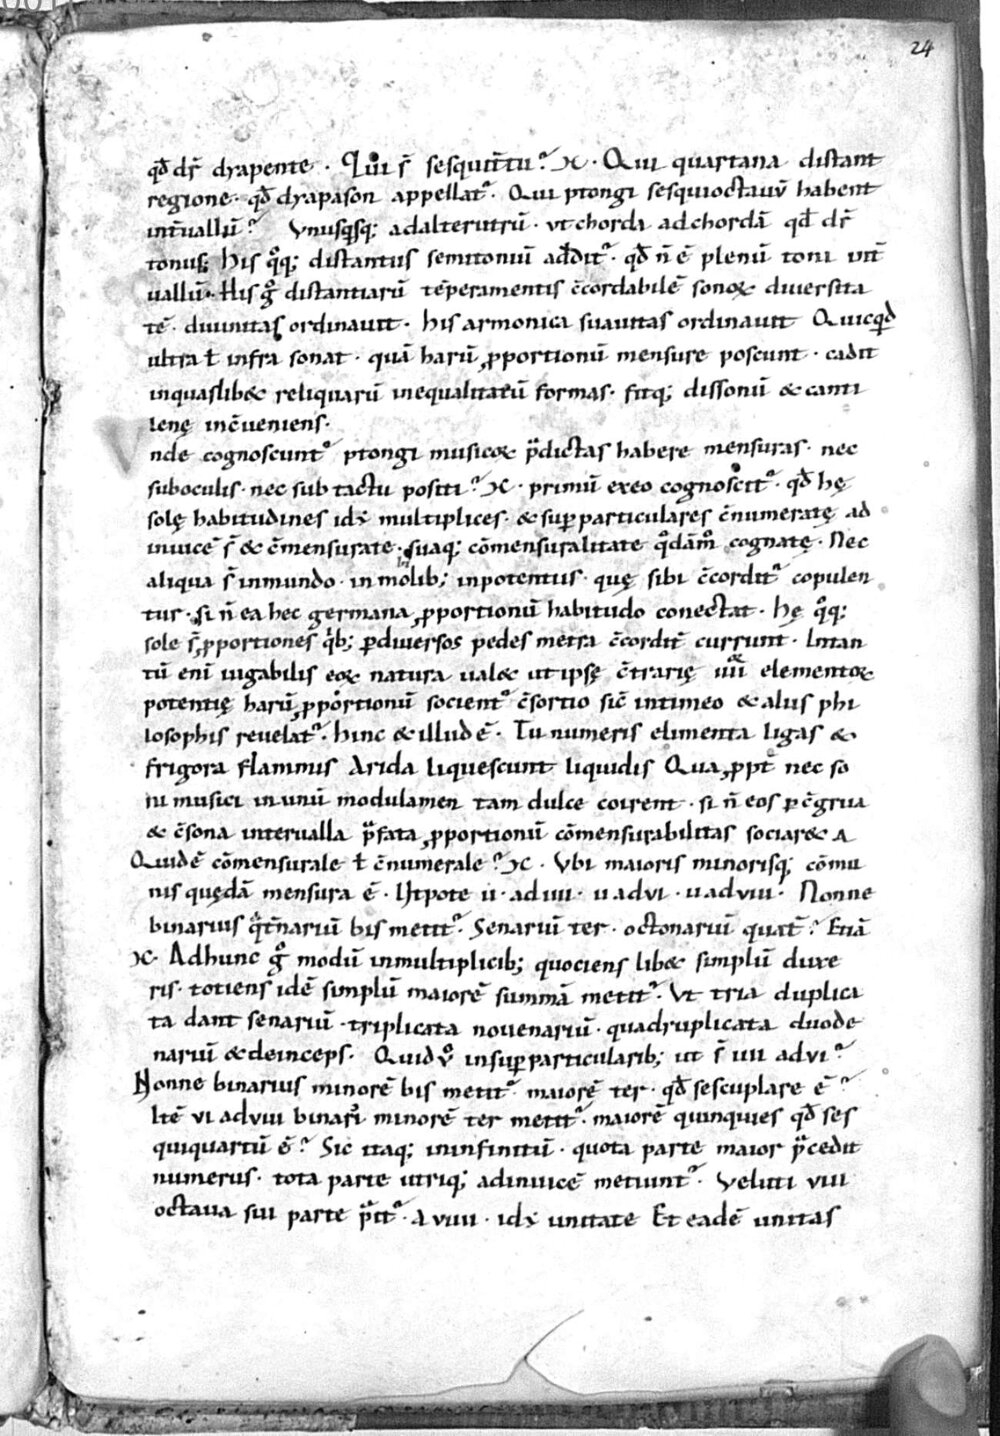 24
qđ dr̄ dyapente · Qui s̄ sesquit̄tii? ϽC · Qui quartana distant
regione · qđ dyapason appellat᷑ · Qui ptongi sesquioctauū habent
int̄uallū? Vnusqsq; ad alterutrū · ut chorda ad chordā qđ dr̄
tonus; His qͦq; distantiis semitoniū addit᷑ · qđ n̄ ē plenū toni int̄
uallū · His gͦ distantiarū tēperamentis c̄cordabilē sonoꝝ diuersita
tē · diuinitas ordinauit · his armonica suauitas ordinauit Quicqđ
ultra ł infra sonat · quā harū ꝓportionū mensure poscunt · cadit
in quaslib& reliquarū inequalitatū formas · fitq; dissonū & canti
lenę inc̄ueniens ·
nde cognoscunt᷑ ptongi musicoꝝ p̄dictas habere mensuras · nec
sub oculis · nec sub tactu positi? ϽC · primū ex eo cognoscit᷑ · qđ hę
solę habitudines idÿ multiplices · & suꝑparticulares c̄numeratę ad
inuicē s̄ & c̄mensurate · suaq; cōmensuralitate qͦdāmͦ cognatę · Nec
aliqua s̄ in mundo · in molib; in potentiis · quę sibi c̄cordit᷑ copulen
tur · si n̄ ea hec germana ꝓportionū habitudo conectat · hę qͦq;
sole s̄ ꝓportiones qͥb; ꝑ diuersos pedes metra c̄cordit̄ currunt · In tan
tū enī iugabilis eoꝝ natura ual& ut ipsę c̄trarię iiii elementoꝝ
potentię harū ꝓportionū socient᷑ c̄sortio sic̄ in timeo & aliis phi
losophis reuelat᷑ · hinc & illud ē · Tu numeris elimenta ligas &
frigora flammis Arida liquescunt liquidis Qua ꝓpt̄ nec so
ni musici in unū modulamen tam dulce coirent · si n̄ eos ꝑ c̄grua
& c̄sona interualla p̄fata ꝓportionū cōmensurabilitas sociar&
Quid ē cōmensurale ł c̄numerale? ϽC · Vbi maioris minorisq; cōmu
nis quędā mensura ē · Utpote ii · ad iiii · ii ad vi · ii ad viii · Nonne
binarius qͣt̄narīū bis metit᷑ · Senariū ter · octonariū quat̄? Etiā
ϽC · Ad hunc gͦ modū in multiplicib; quociens lib& simplū duxe
ris · totiens idē simplū maiorē summā metit᷑ · Vt tria duplica
ta dant senariū · triplicata nouenariū · quadruplicata duode
nariū & deinceps · Quid vͦ in suꝑparticularib; ut s̄ iiii ad vi?
Nonne binarius minorē bis metit᷑ · maiorē ter · qđ sescuplare ē?
Itē vi ad viii binari᷒ minorē ter metit᷑ · maiorē quinquies qđ ses
quiquartū ē? Sic itaq; in infinitū · quota parte maior p̄cedit
numerus · tota parte utriq; ad inuicē metiunt᷑ · Veluti viii
octaua sui parte p̄it᷑ · A viiii · idÿ unitate Et eadē unitas